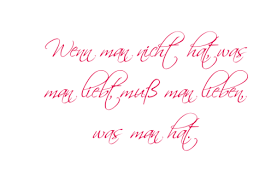 Wenn man nicht hat was
man liebt muß man lieben
was man hat.